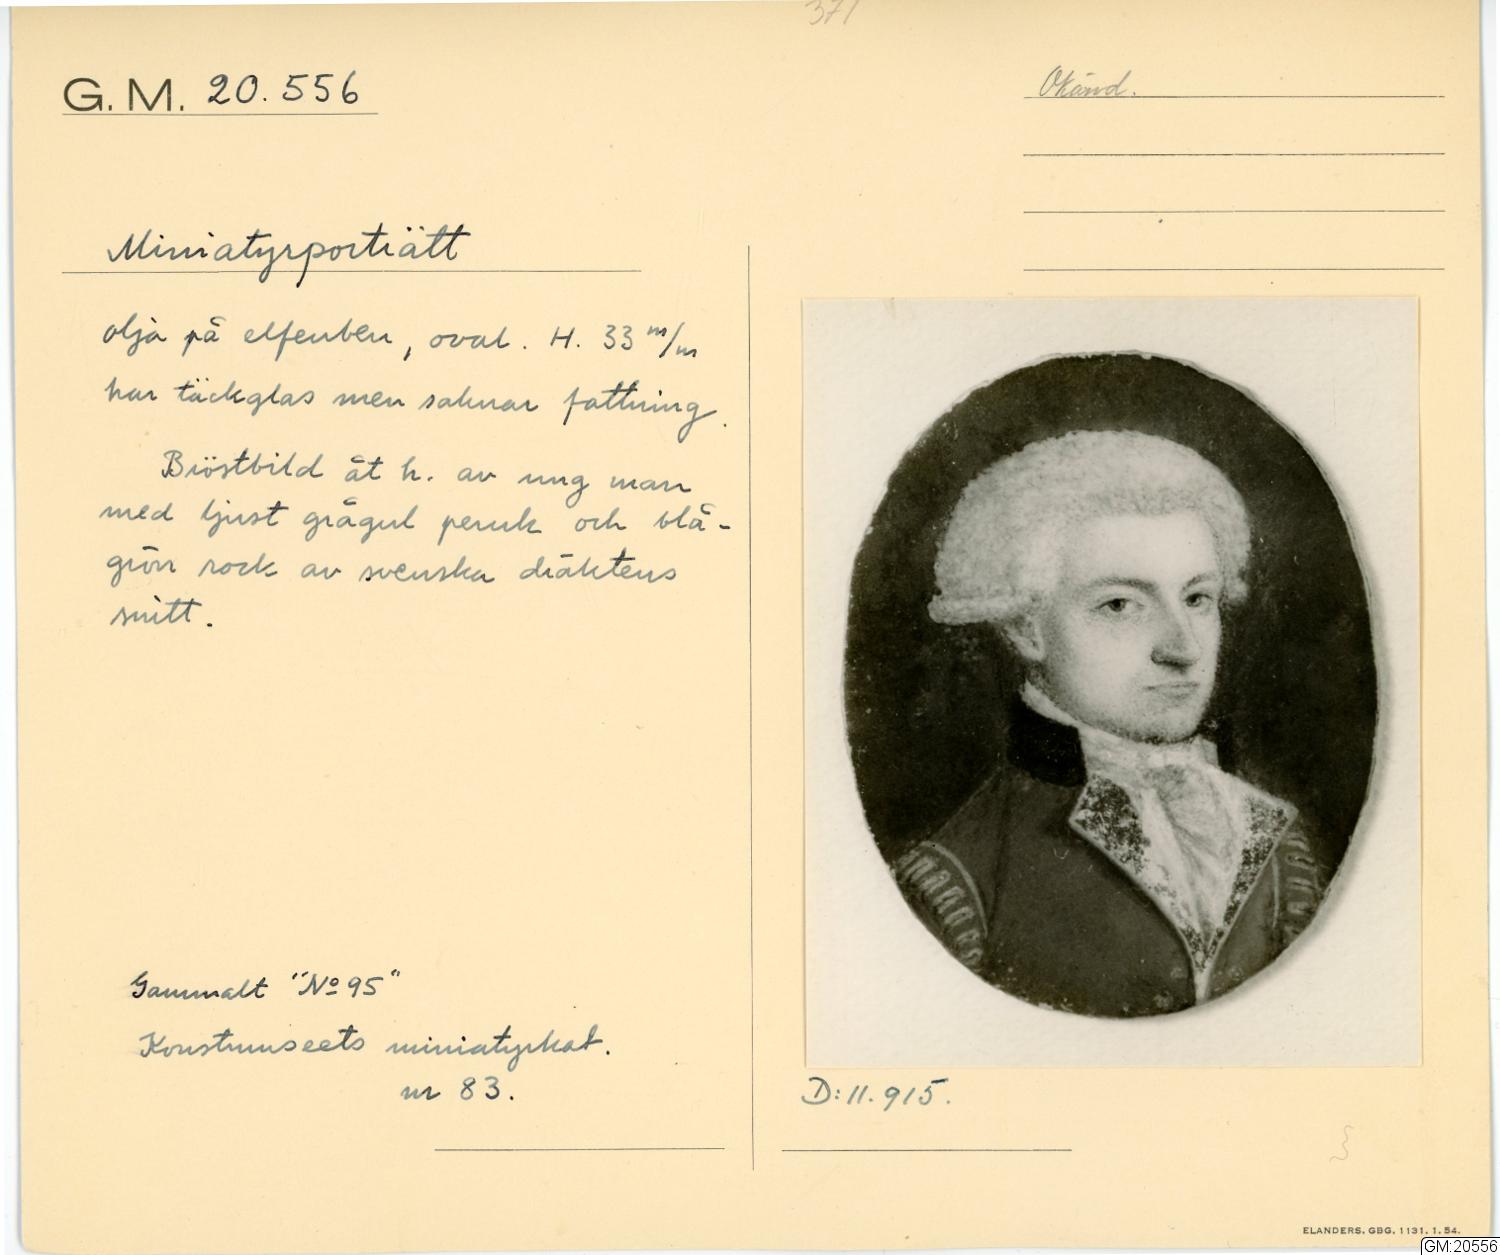 371
G. M. 20.556
Okänd.
Miniatyrporträtt
olja på elfenben, oval. H. 33 m/m
har täckglas men saknar fattning.
Bröstbild åt h. av ung man
med ljust grågul peruk och blå-
grön rock av svenska dräktens
snitt.
Gammalt "No 95"
Konstmuseets miniatyrkat.
nr 83.
D: 11. 915.
ELANDERS. GBG. 1131. 1. 54.
GM:20556